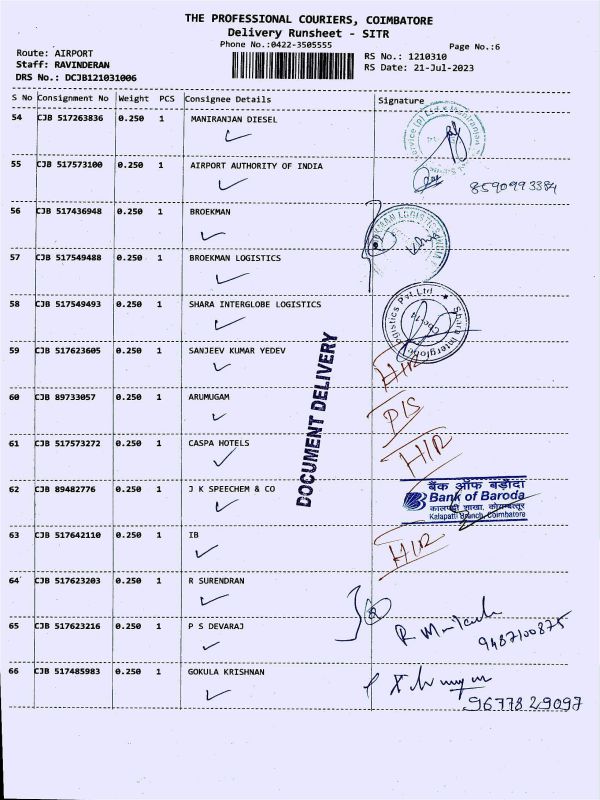 THE PROFESSIONAL COURIERS, COIMBATORE
Delivery Runsheet - SITR
Phone No.:0422-3505555
Page No.:6
Route: AIRPORT
RS No.: 1210310
Staff: RAVINDERAN
RS Date: 21-Jul-2023
DRS No.: DCJB121031006
S No Consignment No Weight PCS Consignee Details Signature
54 CJB 517263836 0.250 1 MANIRANJAN DIESEL
55 CJB 517573100 0.250 1 AIRPORT AUTHORITY OF INDIA
8590993384
56 CJB 517436948 0.250 1 BROEKMAN
57 CJB 517549488 0.250 1 BROEKMAN LOGISTICS
58 CJB 517549493 0.250 1 SHARA INTERGLOBE LOGISTICS
Shara Interglobe Logistics Pvt.Ltd
59 CJB 517623605 0.250 1 SANJEEV KUMAR YEDEV
H/R
60 CJB 89733057 0.250 1 ARUMUGAM
P/S
61 CJB 517573272 0.250 1 CASPA HOTELS
H/R
DOCUMENT DELIVERY
62 CJB 89482776 0.250 1 J K SPEECHEM & CO
बैंक ऑफ बड़ौदा
Bank of Baroda
कालपट्टी शाखा, कोयम्बत्तूर
Kalapatti Branch, Coimbatore
63 CJB 517642110 0.250 1 IB
H/R
64 CJB 517623203 0.250 1 R SURENDRAN
65 CJB 517623216 0.250 1 P S DEVARAJ
9487100875
66 CJB 517485983 0.250 1 GOKULA KRISHNAN
9677829097